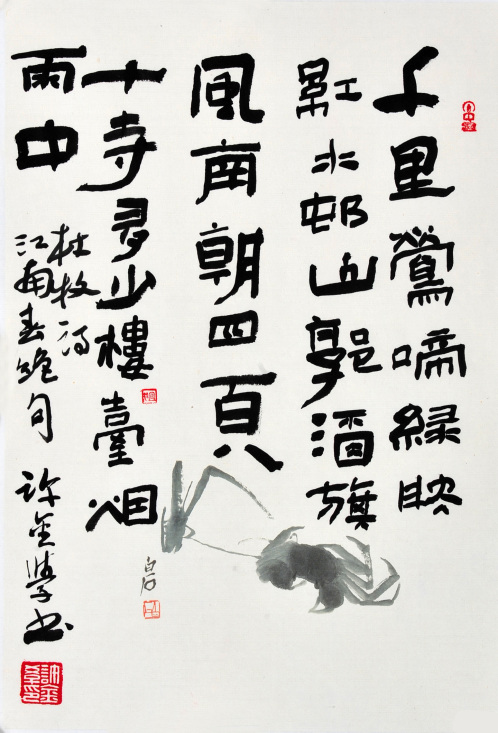 千里鶯啼綠映
紅水邨山郭酒旗
風南朝四百八
十寺多少樓臺烟
雨中
杜牧詩
江南春絕句
許金學書
白石